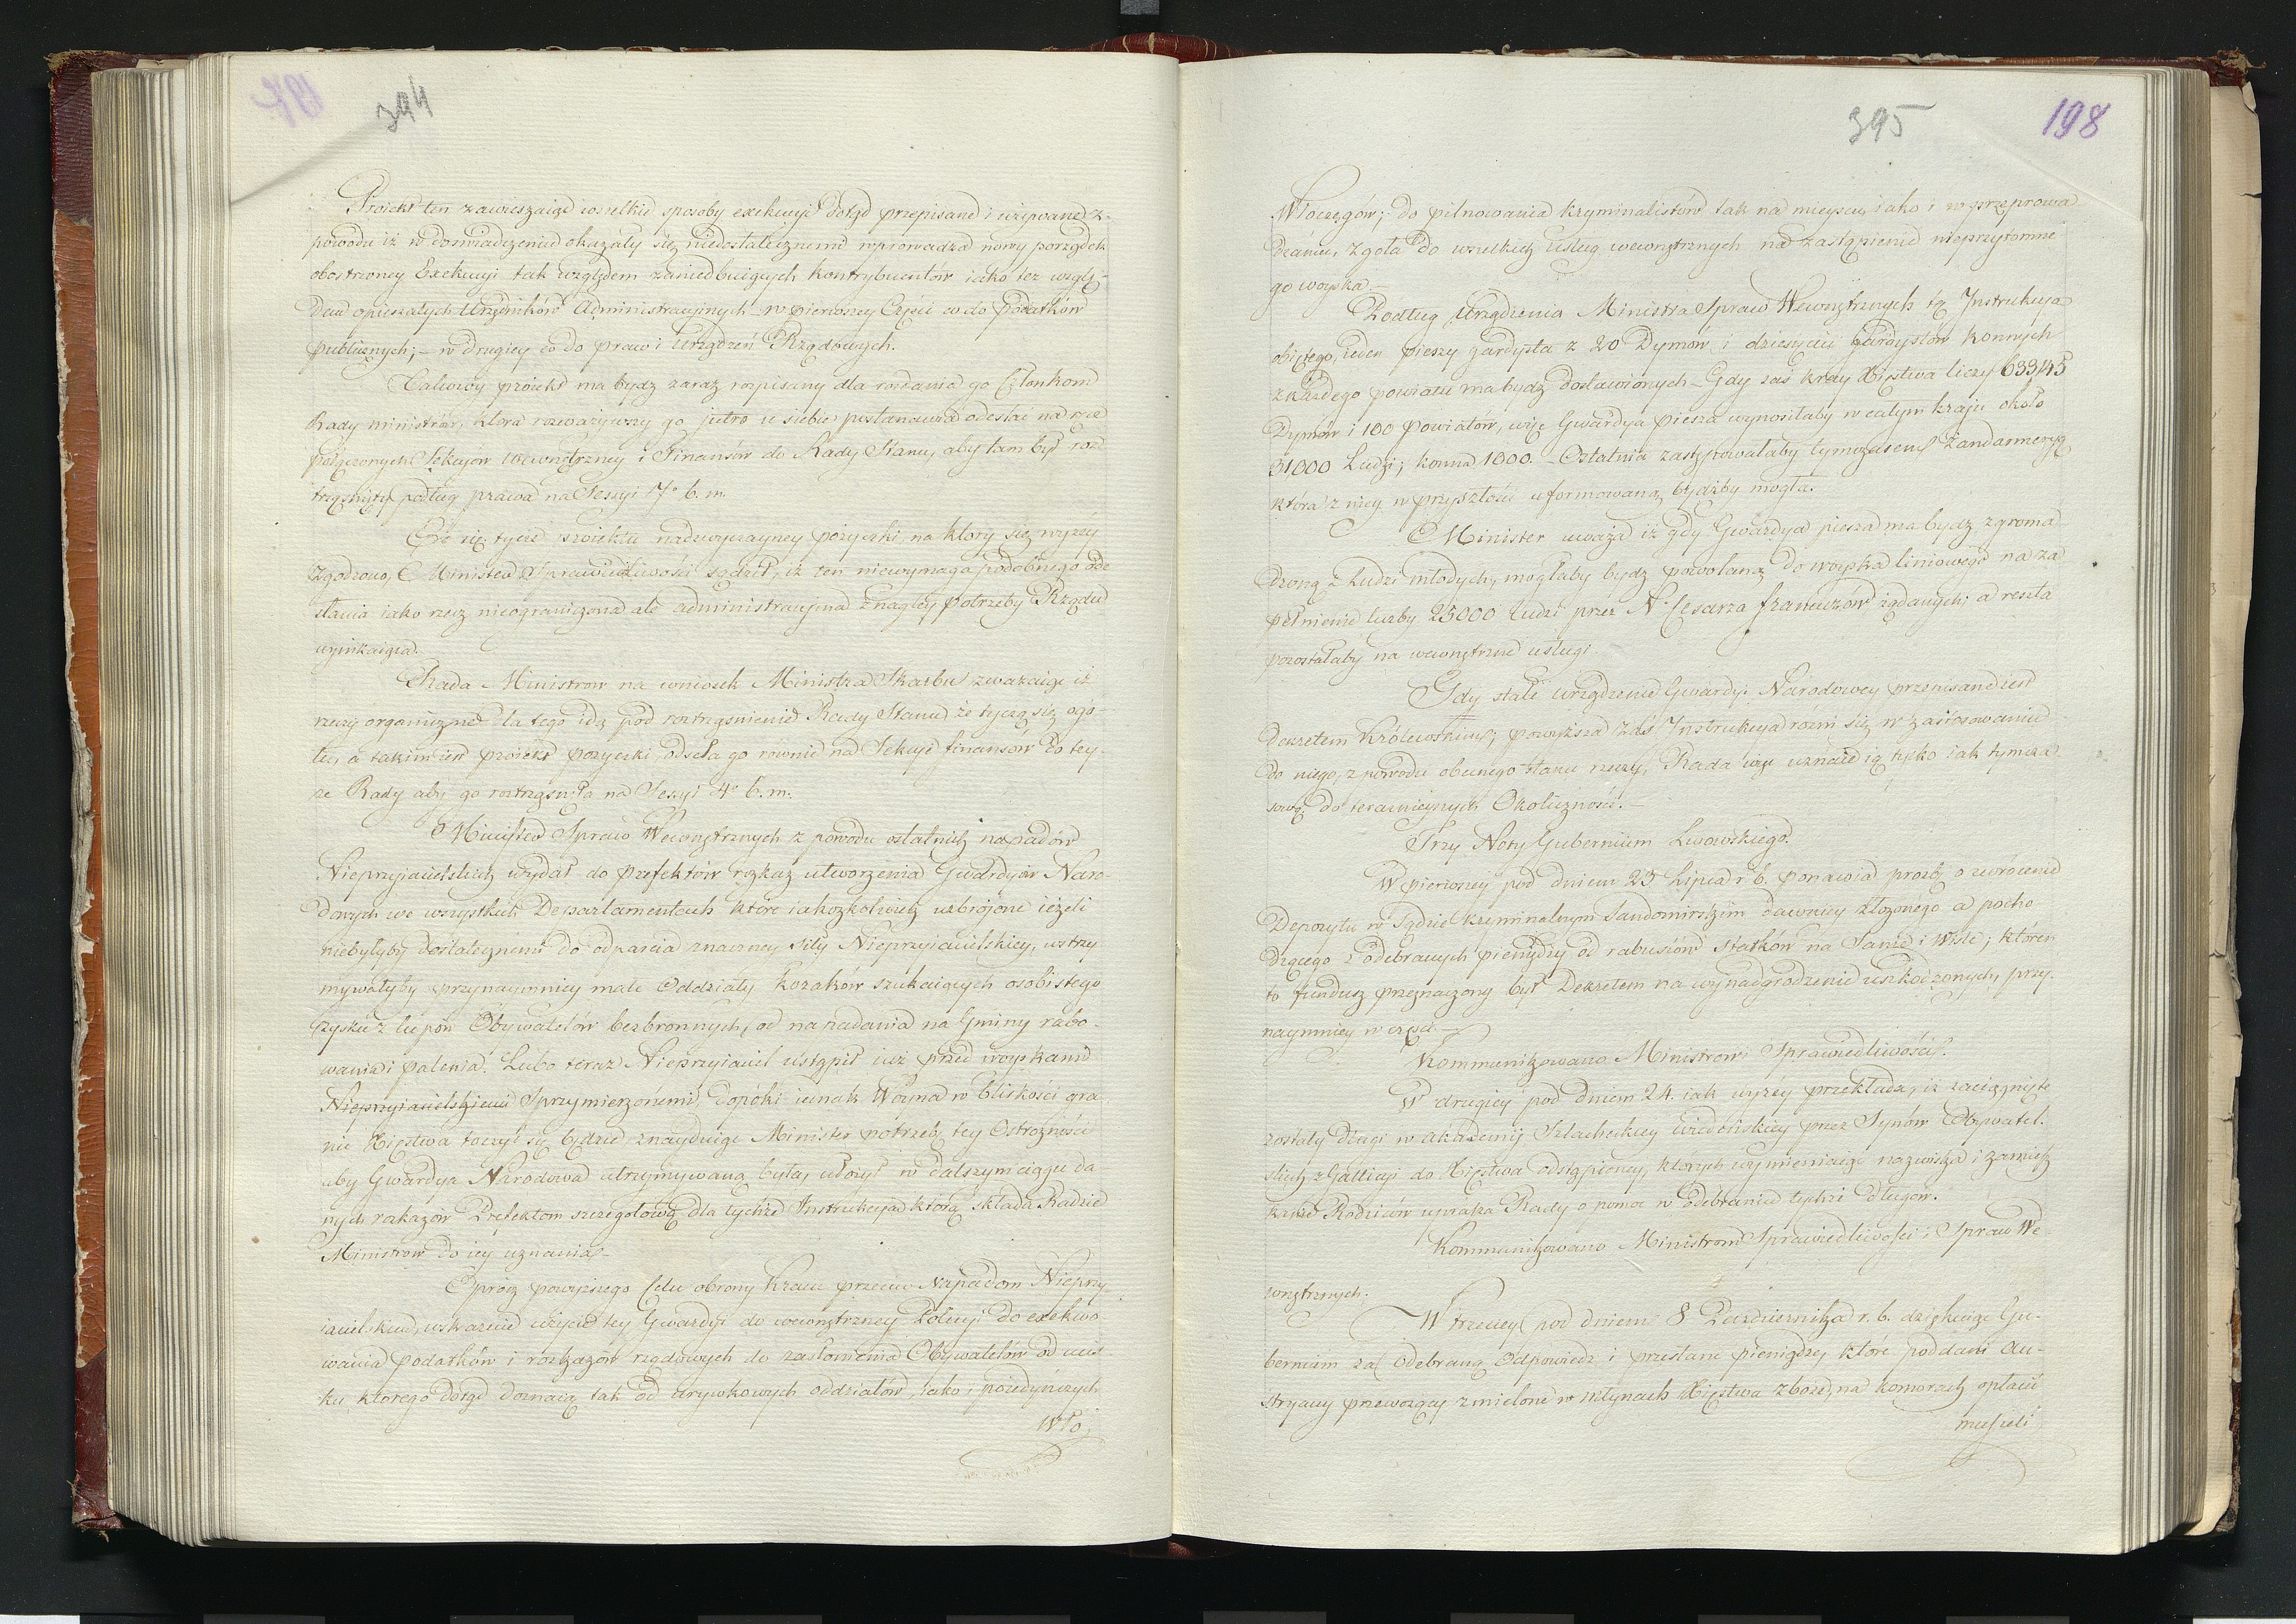 394
Proiekt ten zawieszaiąc wszelkie sposoby exekucyi dotąd przepisane i używane z
powodu iż w doświadczeniu okazały się niedostatecznemi wprowadza nowy porządek
obostrzoney Exekucyi tak względem zaniedbuiących kontrybuentów iako też wzglę-
dem opieszałych Urzędników Administracyjnych w pierwszey Części co do podatków
publicznych; – w drugiey co do praw i Urządzeń Rządowych.
Całkowy proiekt ma bydz zaraz rozpisany dla rozdania go Członkom
Rady ministrów, która rozważywszy go jutro u siebie postanowiła odesłać na ręce
połączonych Sekcyów Wewnętrzney i Finansów do Rady Stanu, aby tam był roz
trząśnięty podług prawa na Sessyi 7° b. m.
Co się tycze proiektu nadzwyczayney pożyczki, na który się wyżéy
zgodzono, Minister Sprawiedliwości sądził, iż ten niewymaga podobnego ode
słania iako rzecz nieograniczona ale administracyjna z nagłey potrzeby Rządu
wynikaiąca.
Rada Ministrów na wniosek Ministra Skarbu zważaiąc iż
rzeczy organiczne dla tego idą pod roztrząśnienie Rady Stanu że tyczą się ogó-
łu, a takim iest proiekt pożyczki, odseła go równie na Sekcyę finansów do tey-
że Rady aby go roztrząsnęła na Sessyi 4° b. m.
Minister Spraw Wewnętrznych z powodu ostatnich napadów
Nieprzyiacielskich wydał do Prefektów rozkaz utworzenia Gwardyów Naro-
dowych we wszystkich Departamentach które iakożkolwiek uzbroione ieżeli
niebyłyby dostatecznemi do odparcia znaczney siły Nieprzyiacielskiey, wstrzy
mywałyby przynaymniey małe Oddziały Kozaków szukaiących osobistego
zysku z łupów Obywatelów bezbronnych, od napadania na Gminy rabo-
wania i palenia. Lubo teraz Nieprzyiaciel ustąpił iuż przed woyskami
Nieprzyiacielskiemi Sprzymierzonemi dopóki iednak Woyna w bliskości gra
nic Xięstwa toczyć się będzie znayduiąc Minister potrzebę tey Ostrożności
aby Gwardya Narodowa utrzymywaną była, ułożył w dalszym ciągu da
nych rozkazów Prefektom szczegółową dla tychże Instrukcyą którą składa Radzie
Ministrów do iey uznania.
Oprócz powyższego Celu obrony Kraiu przeciw Napadom Nieprzy-
iacielskim, wskazuie użycie tey Gwardyi do wewnętrzney Policyi do exekwo
wania podatków i rozkazów rządowych do zasłonienia Obywatelów od ucis-
ku którego dotąd doznaią tak od urywkowych oddziałów, iako i poiedynczych
Wło
395
198
Włóczęgów; do pilnowania kryminalistów tak na mieyscu iako i w przeprowa
dzaniu, zgoła do wszelkich usług wewnętrznych na zastąpienie nieprzytomne
go woyska. –
Podług Urządzenia Ministra Spraw Wewnętrznych tą Instrukcyą
obiętego, ieden pieszy gardysta z 20 Dymów i dziesięciu gardystów konnych
z każdego powiatu ma bydz dostawionych – Gdy zaś Kray Xięstwa liczy 633,145
Dymów i 100 Powiatów, więc Gwardya piesza wynosiłaby w całym kraju około
31000 Ludzi; konna 1000. – Ostatnia zastępowałaby tymczasem Żandarmeryą
która z niey w przyszłości uformowaną bydźby mogła.
Minister uważa iż gdy Gwardya piesza ma bydz zgroma
dzoną z Ludzi młodych, mogłaby bydz powołaną do woyska liniowego na za
pełnienie liczby 25000 ludzi przez N. Cesarza francuzów żądanych; a reszta
pozostałaby na wewnętrzne usługi.
Gdy stałe urządzenie Gwardyi Narodowey przepisane iest
Dekretem Królewskim; powyższa zaś Instrukcya rożni się w zastosowaniu
do niego, z powodu obecnego stanu rzeczy, Rada więc uznaie ią tylko iak tymcza
sową do teraźnieyszych Okoliczności. –
Trzy Noty Gubernium Lwowskiego.
W pierwszey pod dniem 23 Lipca r. b. ponawia prośbę o zwrócenie
Depozytu w Sądzie kryminalnym Sandomirskim dawniey złożonego a pocho
dzącego z odebranych pieniędzy od rabusiów statków na Sanie i Wiśle; któren
to fundusz przeznaczony był Dekretem na wynadgrodzenie uszkodzonych, przy-
naymniey w części –
Kommunikowano Ministrowi Sprawiedliwości.
W drugiey pod dniem 24. iak wyżey przekłada, iż zaciągnięte
zostały długi w Akademij Szlacheckiey Wiedeńskiey przez Synów Obywatel-
skich z Gallicyi do Xięstwa odstąpioney, których wymieniaiąc nazwiska i zamiesz
kanie Rodziców uprasza Rady o pomoc w odebraniu tychże długów.
Kommunikowano Ministrom Sprawiedliwości i Spraw We
wnętrznych.
W trzeciey pod dniem 8 Października r. b. dziękuiąc Gu-
bernium za Odebraną Odpowiedz i przesłane pieniądze, które poddani Au-
stryaccy przewożący zmielone w młynach Xięstwa zboże, na komorach opłacić
musieli